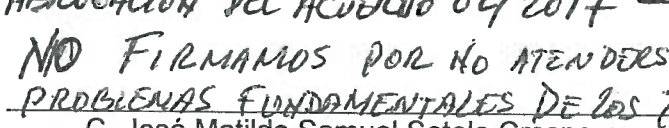 DEL ACUERDO 04/2017 –
NO FIRMAMOS POR NO ATENDERS
PROBLEMAS FUNDAMENTALES DE LOS
C. José Matilde Samuel Sotelo